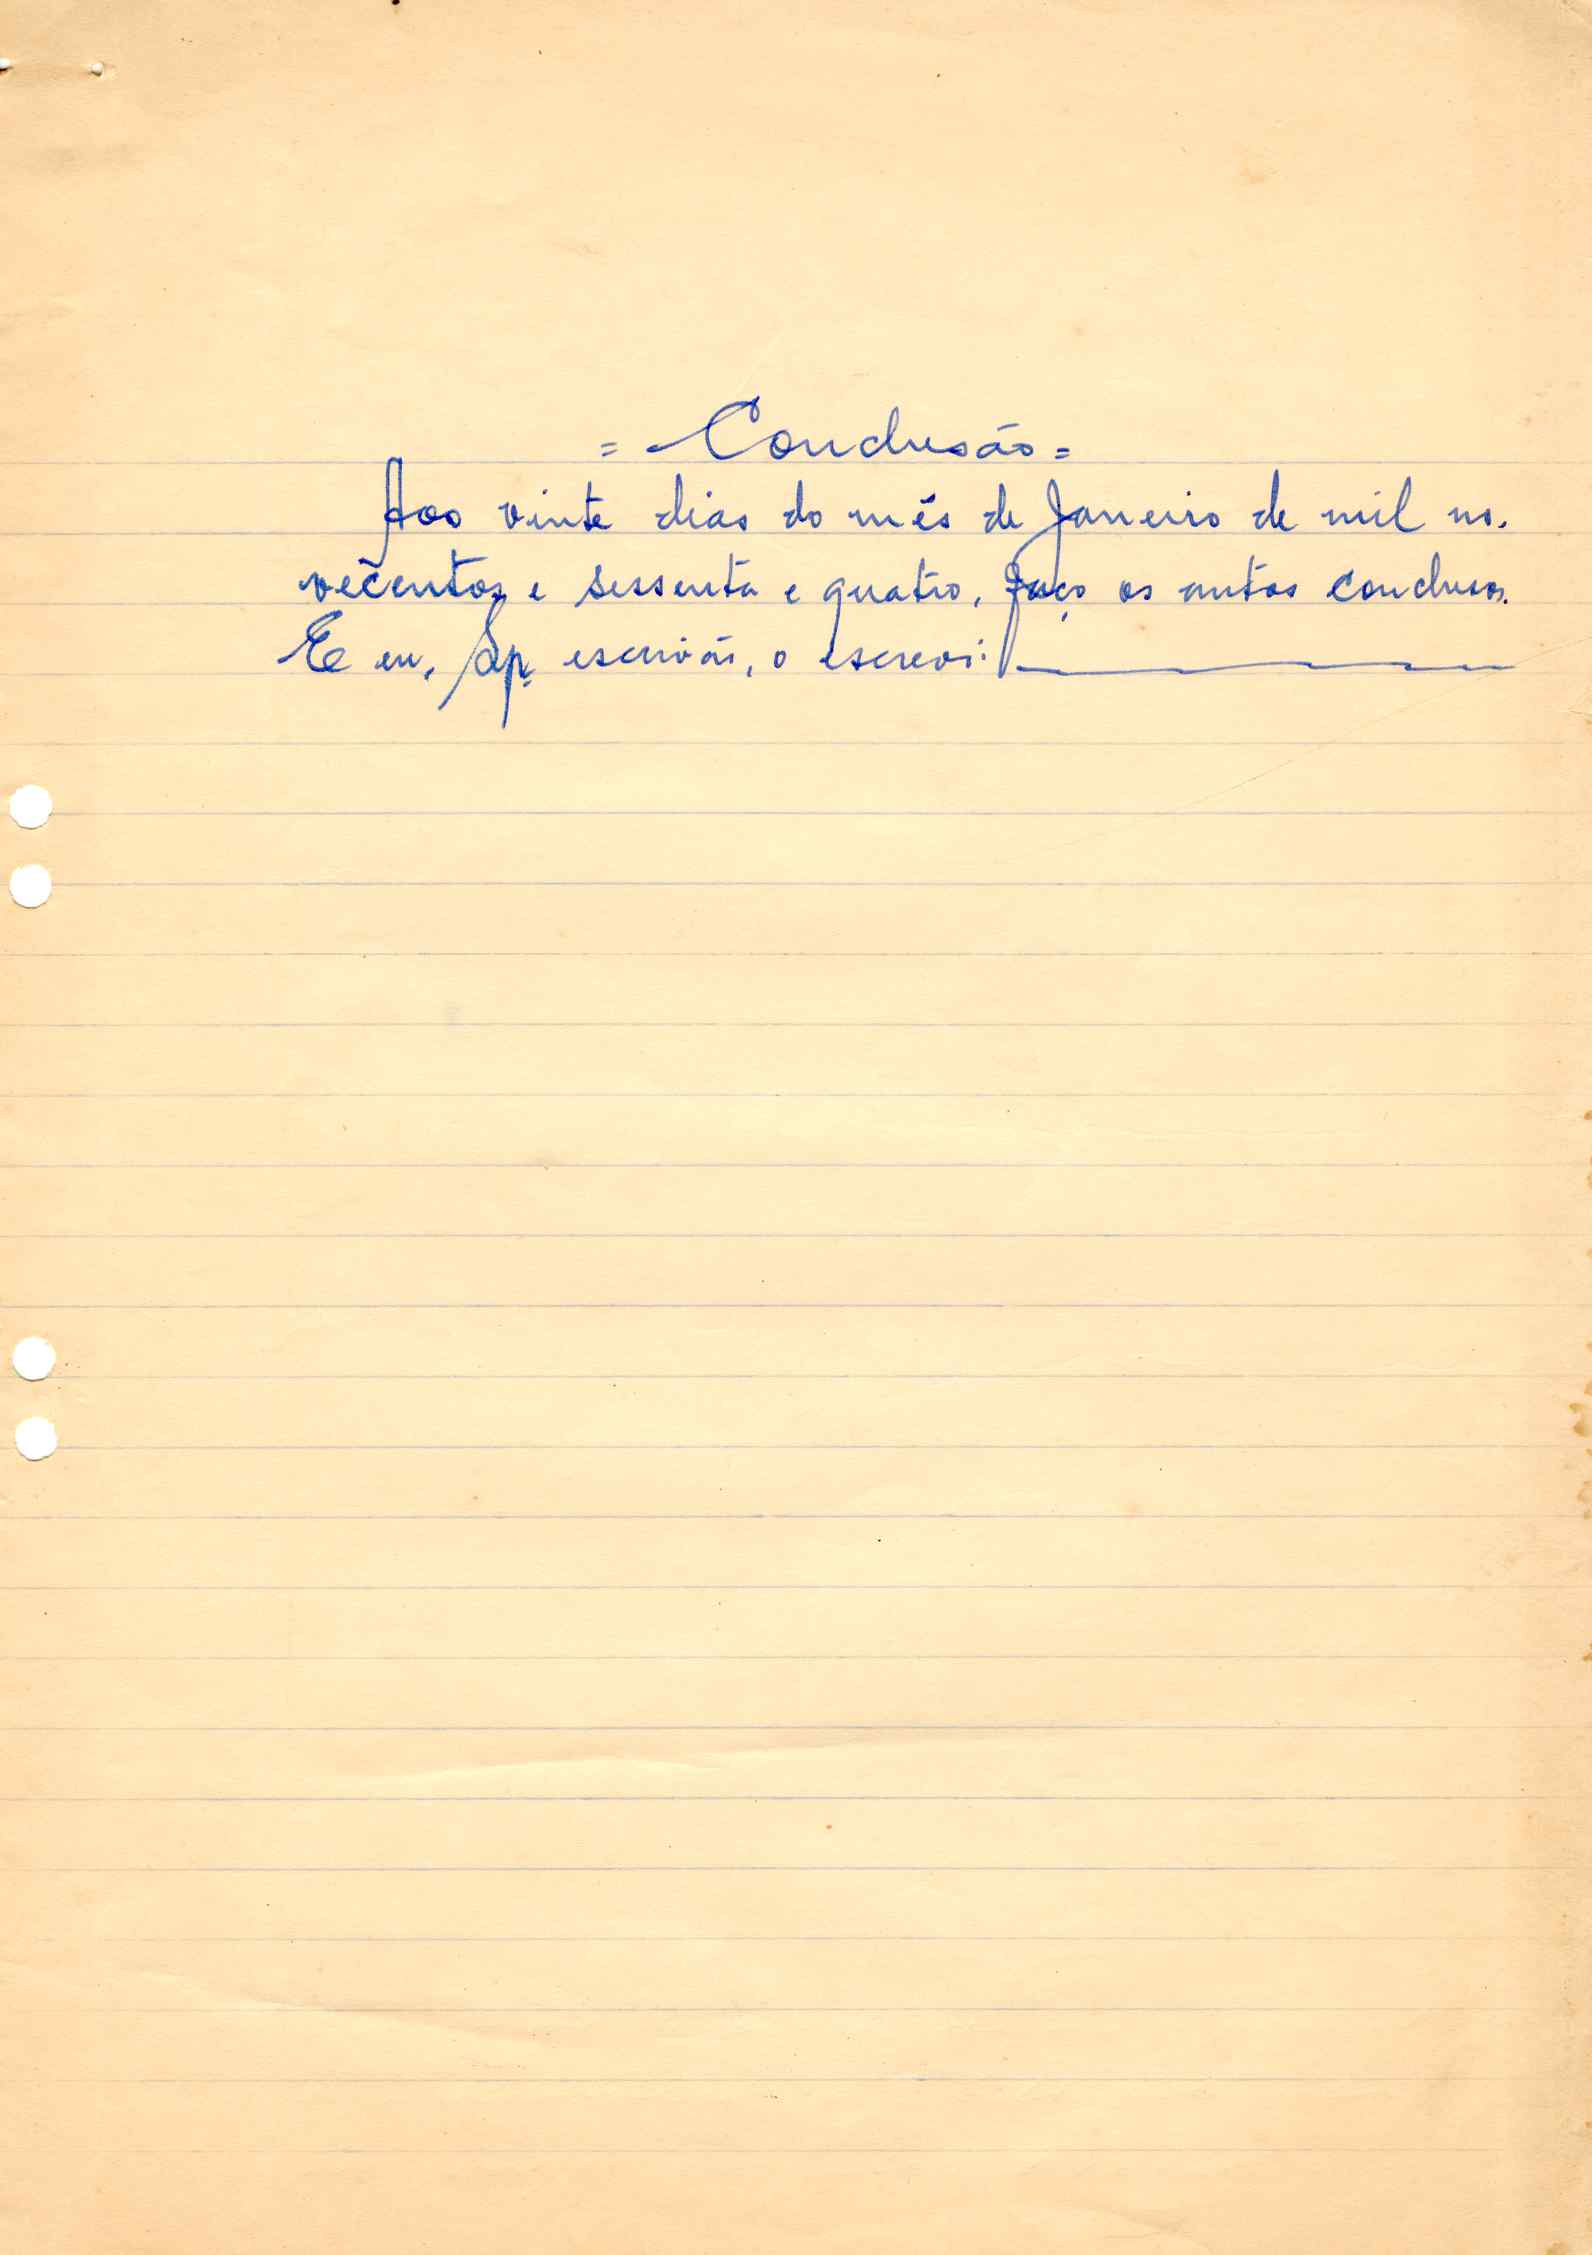 = Conclusão =
Aos vinte dias do mês de Janeiro de mil no-
vecentos e sessenta e quatro, faço os autos conclusos.
E eu, escrivão, o escrevi: